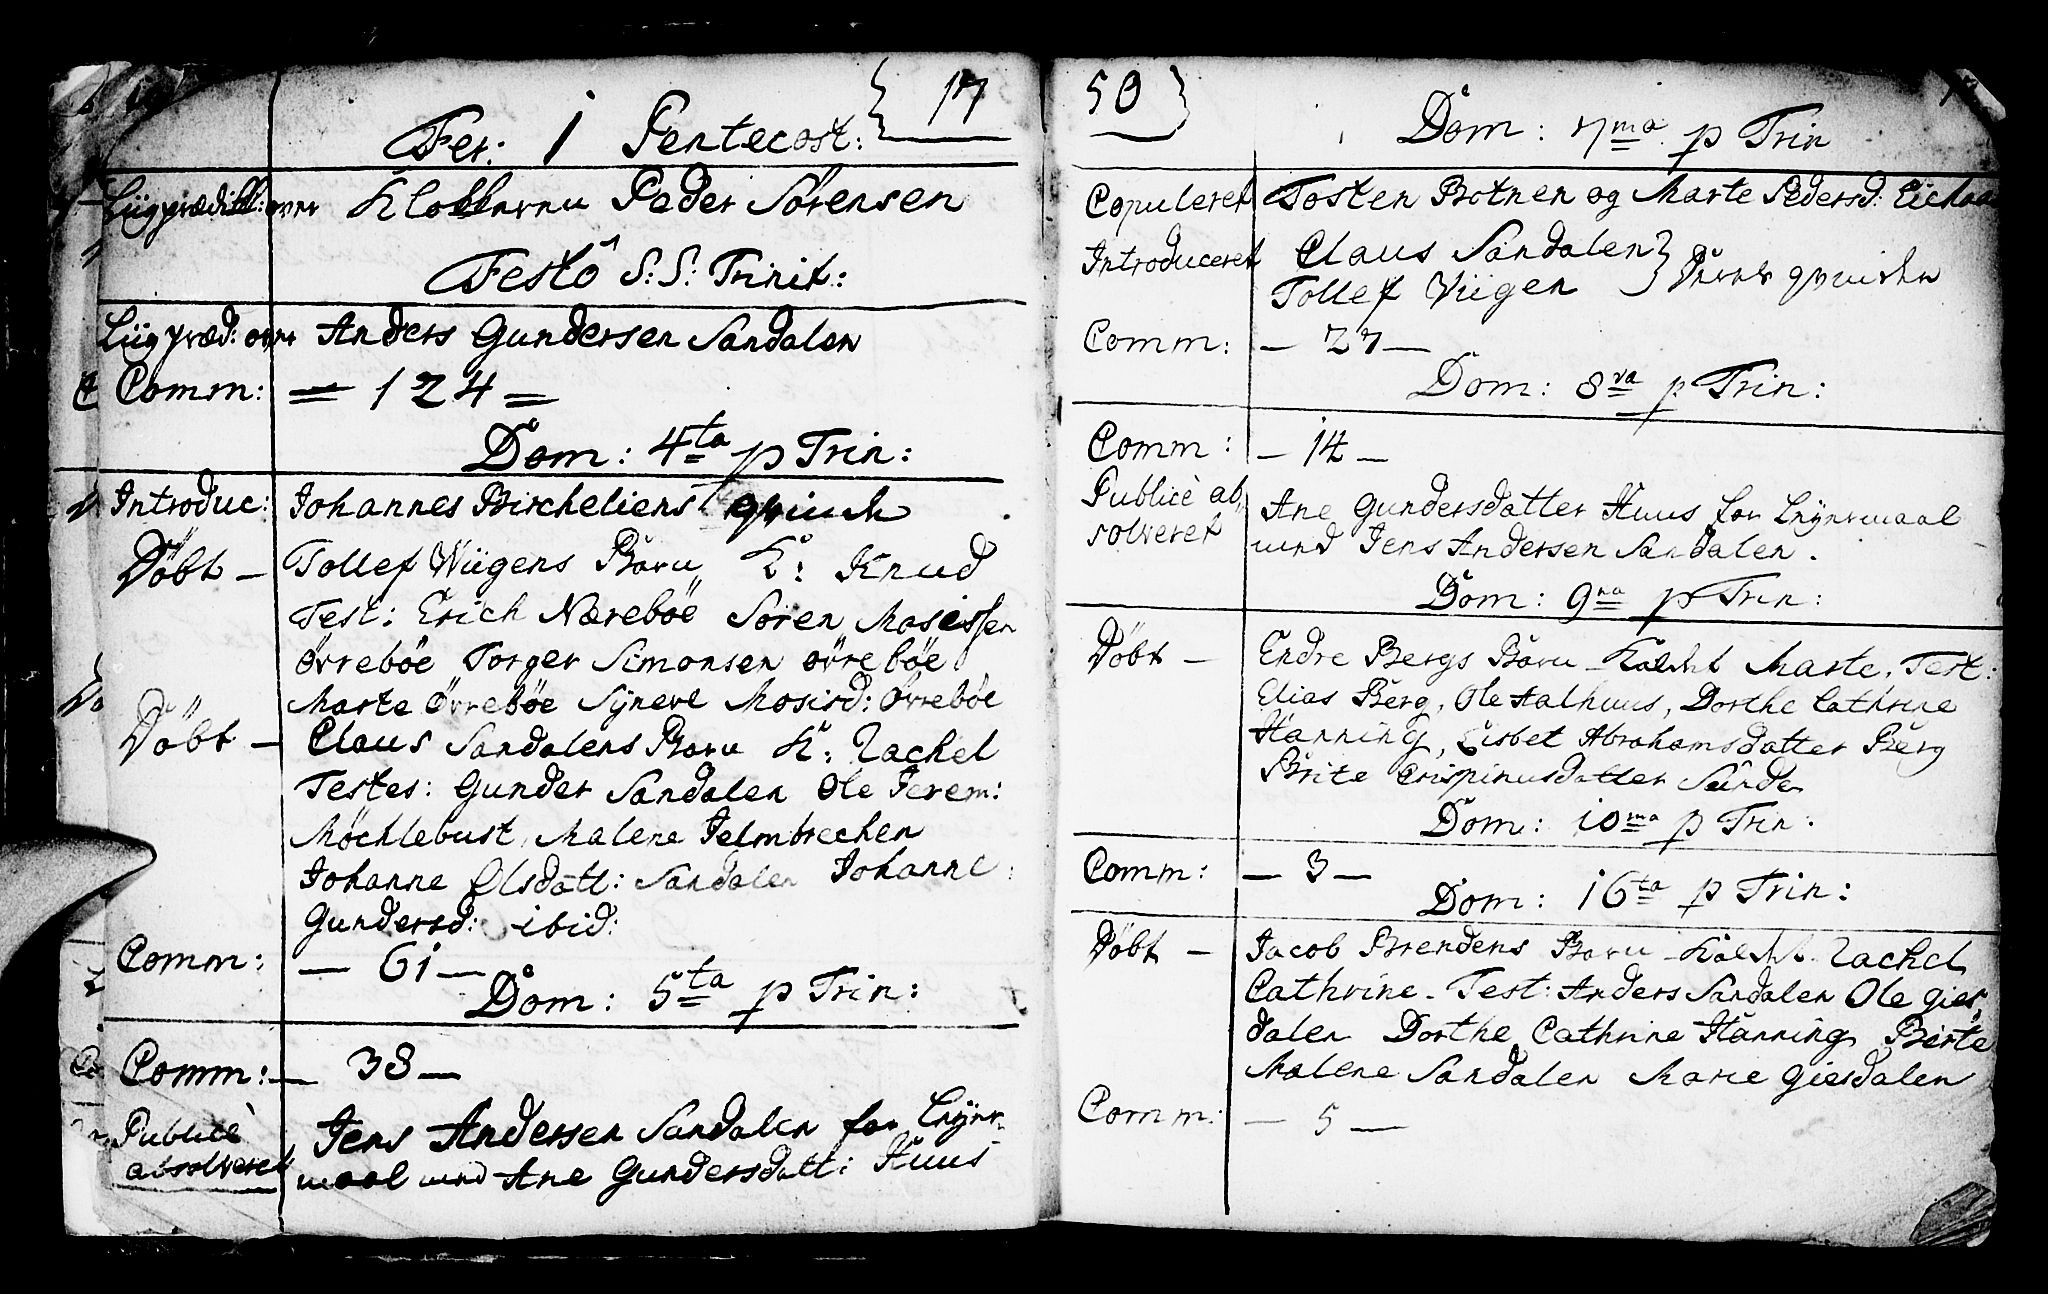 17
Fer: 1 Pentecost:
Liigprædikk: over Klokkeren Peder Sørensen
Festo S: S: Trinit:
Liigpræd: over Anders Gundersen Sandalen
Comm: = 124 =
Dom: 4ta p Trin:
Introduc: Johannes Bircheliens qvinde
Döbt – Tollef Wiigens Barn K: Knud
Test: Erich Nærebøe Søren Mosissen
Örrebøe Torger Simonsen örrebøe
Marte Örrebøe Synevl Mosisd: Örrebøe
Döbt – Claus Sandalens Barn K: Rachel
Testes: Gunder Sandalen Ole Jerem:
Möchlebust, Malene Jelmbrechen
Johanne Olsdatt: Sandalen Johanne
Gundersd: ibid:
Comm: – 61 –
Dom: 5ta p Trin:
Comm: – 38 –
Publicè absolveret Jens Andersen Sandalen for Leyer-
maal med Ane Gundersdatt: Huus
50
Dom: 7ma p Trin
Copuleret Tosten Botnen og Marte Pedersd:
Introduceret Claus Sandalen } Deres qvinder
Tollef Wiigen
Comm: – 27 –
Dom: 8va p Trin:
Comm: – 14 –
Publicè ab Ane Gundersdatter Huus for Leyermaal
solveret med Jens Andersen Sandalen.
Dom: 9na p Trin:
Döbt – Endre Bergs Barn Kaldet Marte. Test:
Elias Berg, Ole Aalhuus, Dorthe Cathrine
Hanning, Lisbet Abrahamsdatter Berg
Brite Crispinusdatter Sunde
Dom: 10ma p Trin:
Comm: – 3 –
Dom: 16ta p Trin:
Döbt – Jacob Brendens Barn Kaldet Rachel
Cathrine. Test: Anders Sandalen Ole Gies,
dalen Dorthe Cathrine Hanning Birte
Malene Sandalen Marie Giesdalen
Comm: – 5 –